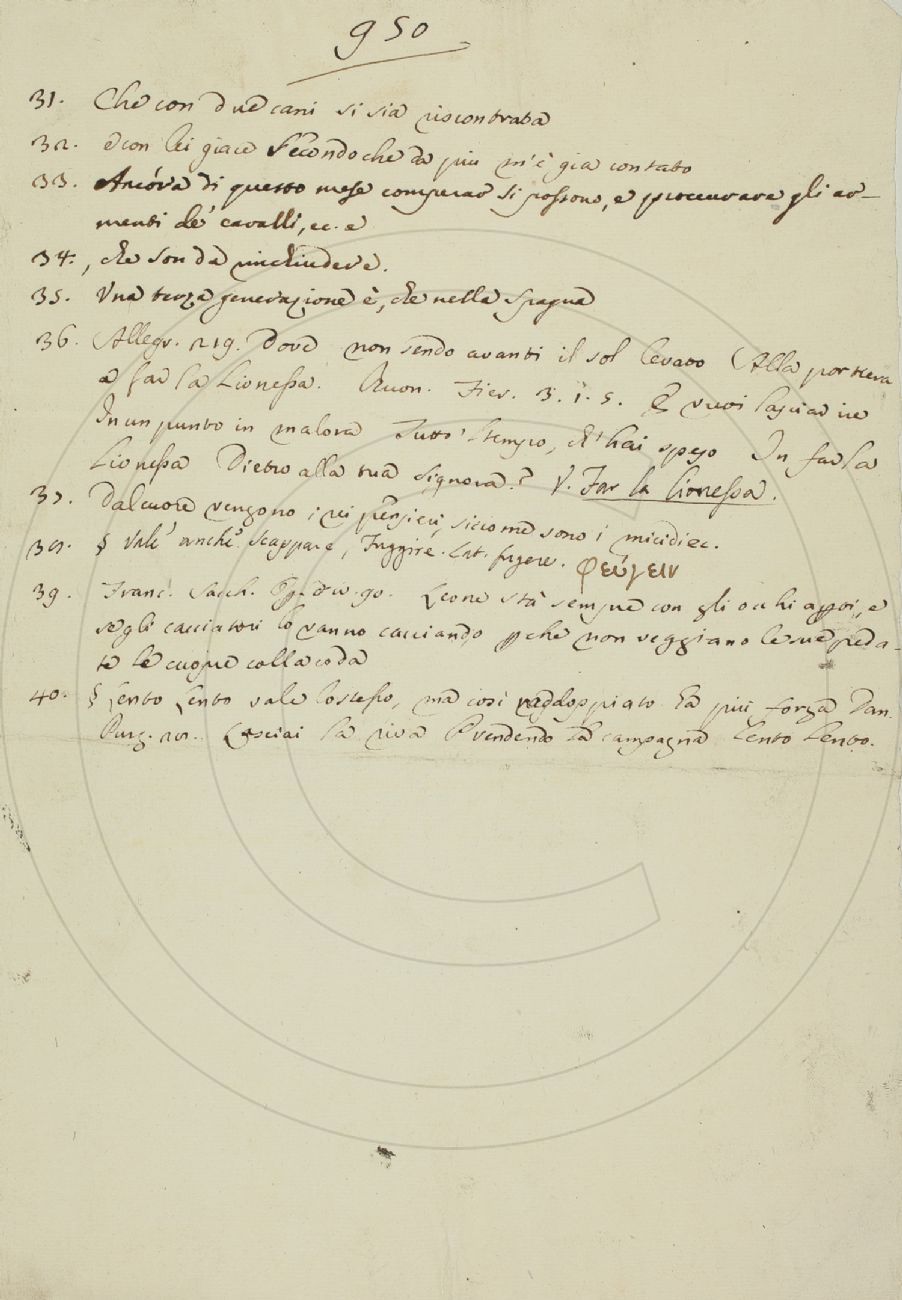 950
31. Che con due cani si sia riscontrata
32. e con lei giace Secondoche da piu m'è gia contato
33. Ancóra di questo mese comperar si possono, e procurare gli ar-
menti de' cavalli, ec. e
34. , che son da rinchiudere.
35. Una terza generazione è, che nella Spagna
36. Allegr. 219. Dove non sendo avanti il sol levato Alla portiera
a far la Lionessa. Buon. Fier. 3. 1. 5. E vuoi lasciar ire
In un punto in malora Tutto 'l tempo, ch'hai speso In far la
Lionessa Dietro alla tua Signora? V. Far la lionessa.
37. Dal cuore vengono i rei pensieri, siccome sono i micidi ec.
38. § Vale anche Scappare, Fuggire. Lat. fugere. φεύγειν
39. Franc. Sacch. Op. div. 90. Leone stà sempre con gli occhi aperti, e
se gli cacciatori lo vanno cacciando, perche non veggiano le sue peda-
te le cuopre colla coda
40. § Lento Lento vale lo stesso, ma così raddoppiato ha piu forza Dan.
Purg. 28. Lasciai la riva Prendendo la campagna Lento Lento.